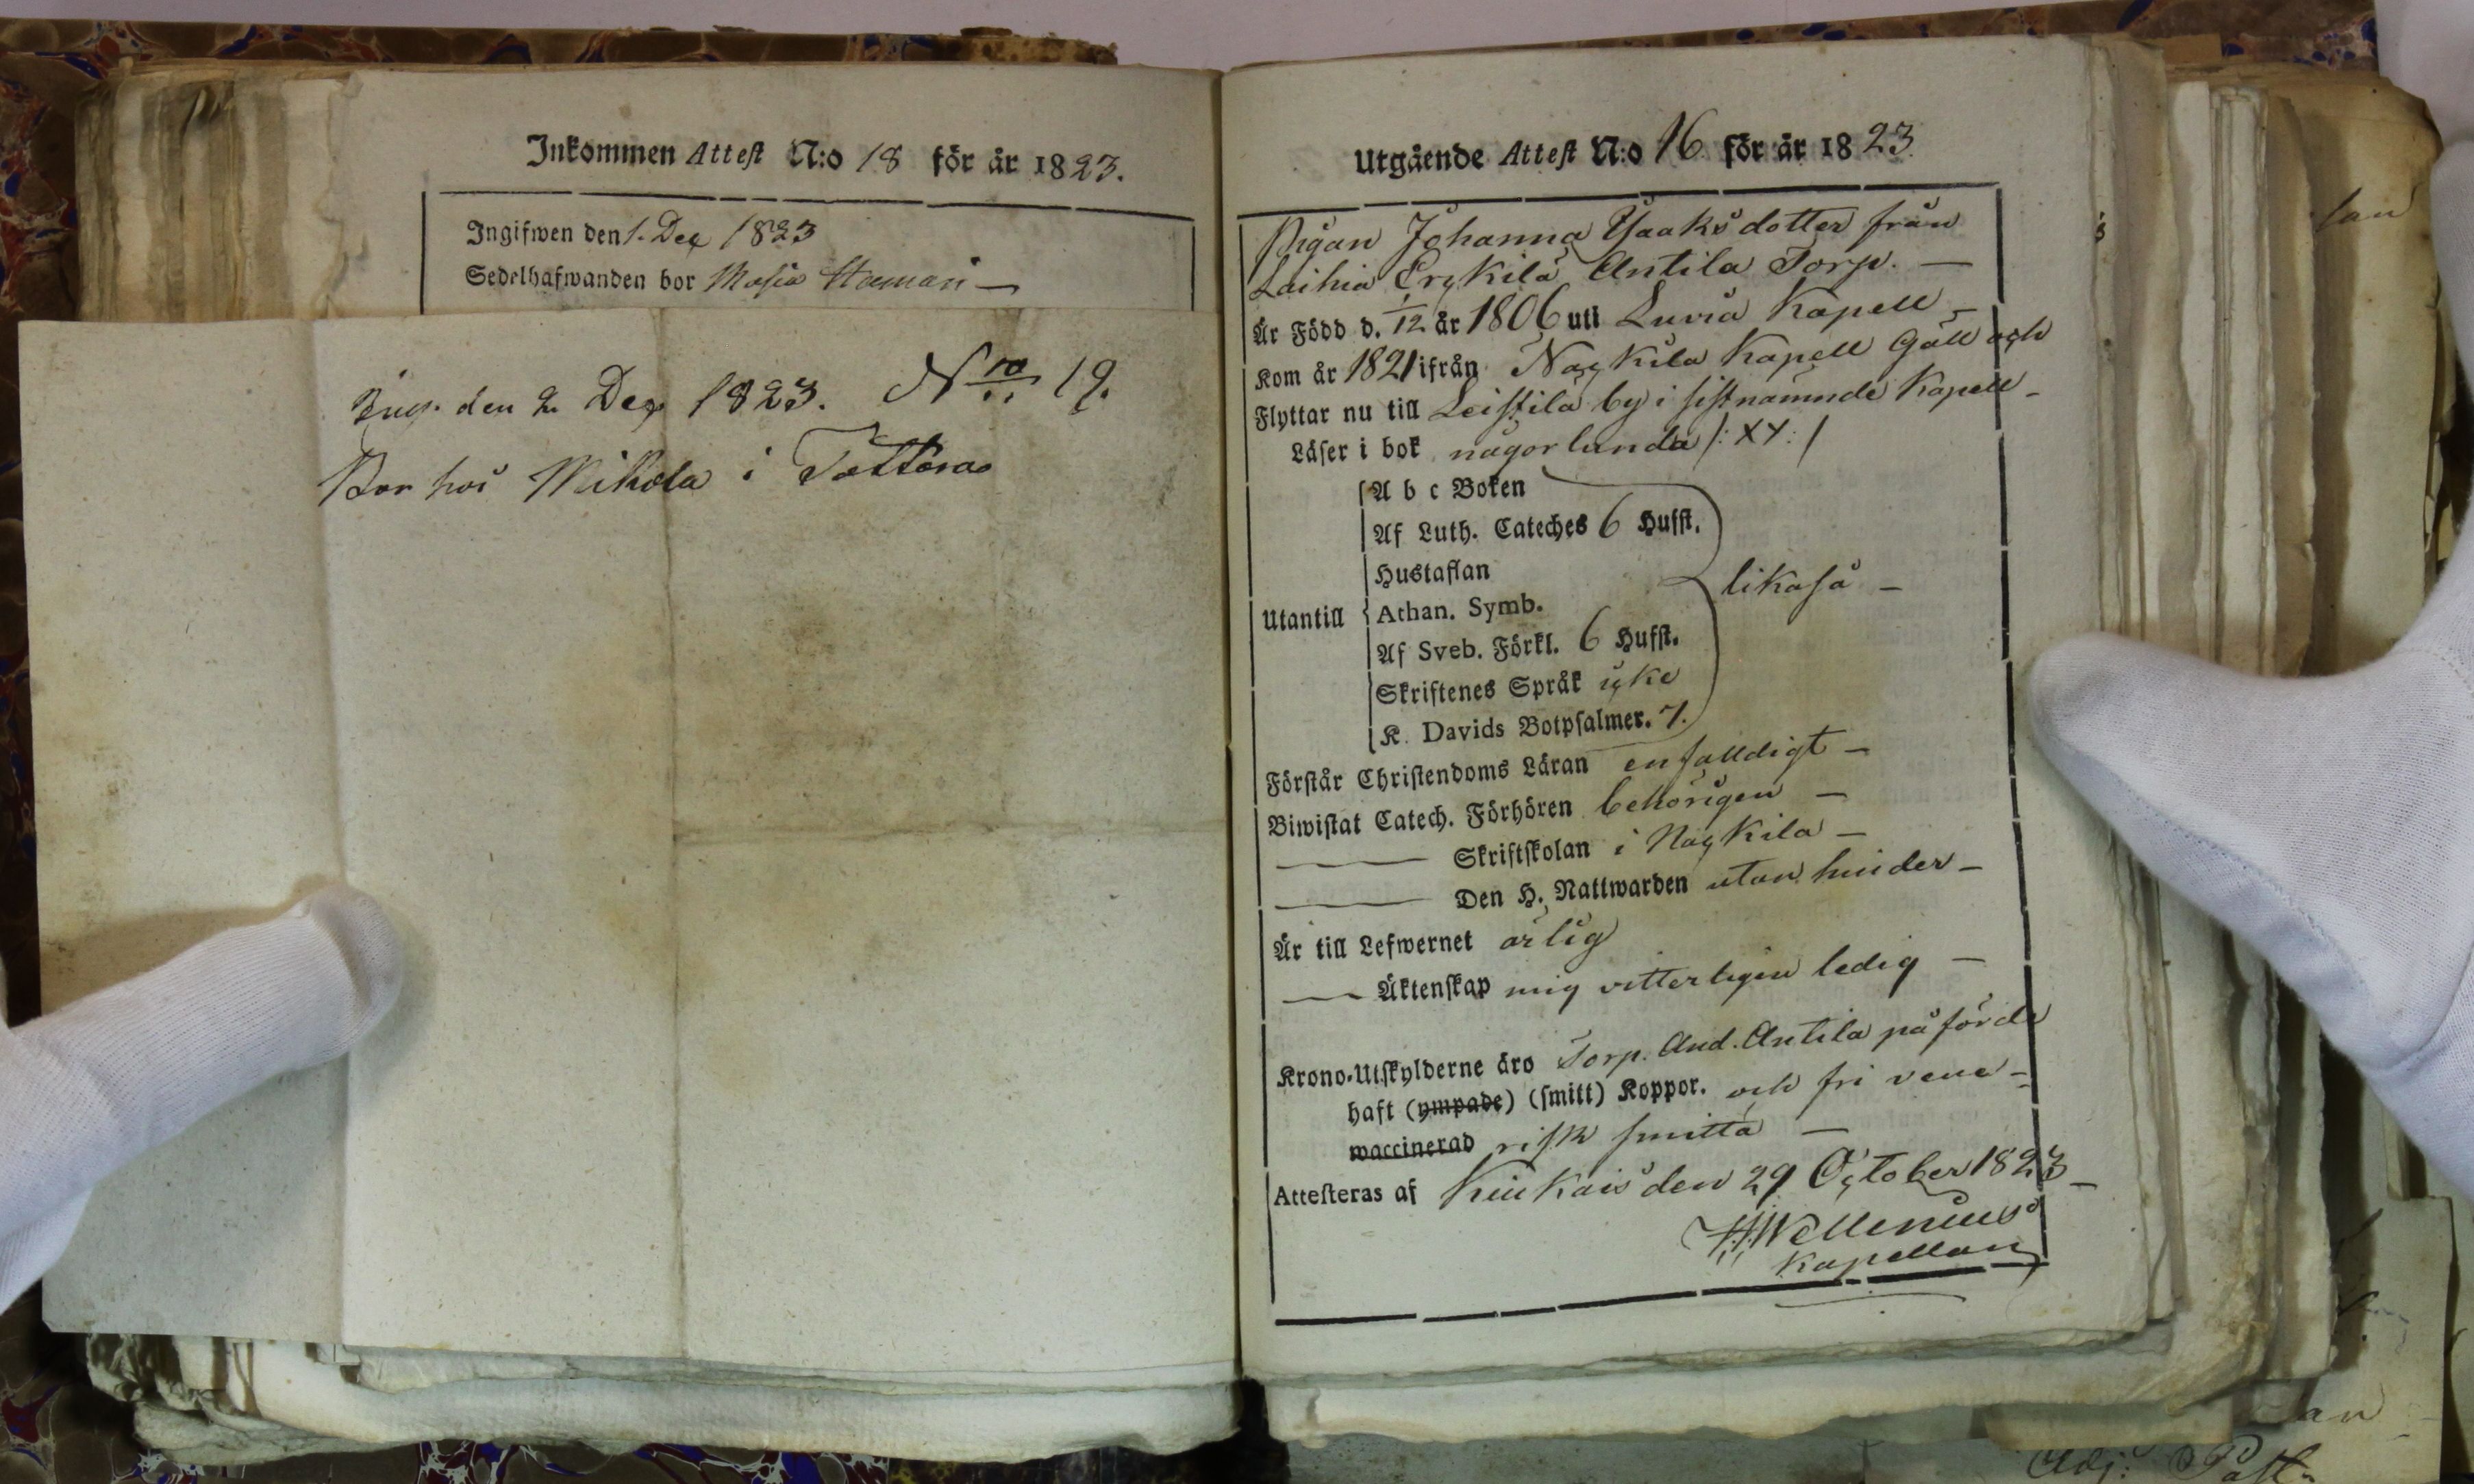 Inkommen Attest N:o 18 för år 1823.
Ingifwen den 1. Dec 1823
Sedelhafwanden bor
Ing. den 2 Dec 1823. Nro 19.
Bor hos Mikola i Tattara
Utgående Attest N:o 16 för år 1823
Pigan Johanna Isaaksdotter från
Laihia Erckilä Antila Torp. —
Är Född d. 1/12 år 1806 uti Luvia Kapell —
Kom år 1821 ifrån Nackila Kapell Gäll och
Flyttar nu till Leistilä by i sistnämnde Kapell —
Läser i bok någorlunda /: XY: /
Utantill
A b c Boken
Af Luth. Cateches 6 Hufst.
Hustaflan
Athan. Symb.
Af Sveb. Förkl. 6 Hufst.
Skriftenes Språk icke
K. Davids Botpsalmer. 7.
likaså —
Förstår Christendoms Läran enfalldigt —
Biwistat Catech. Förhören behörigen —
Skriftskolan i Nackila —
Den H. Nattwarden utan hinder —
Är till Lefwernet ärlig
Äktenskap mig vitterligen ledig —
Krono-Utskylderne äro Torp. And. Antila påförde
haft (ympade) (smitt) Koppor. och fri vene-
waccinerad risk smitta —
Attesteras af Kiukais den 29 October 1823 —
H. Wellenius
Kapellan